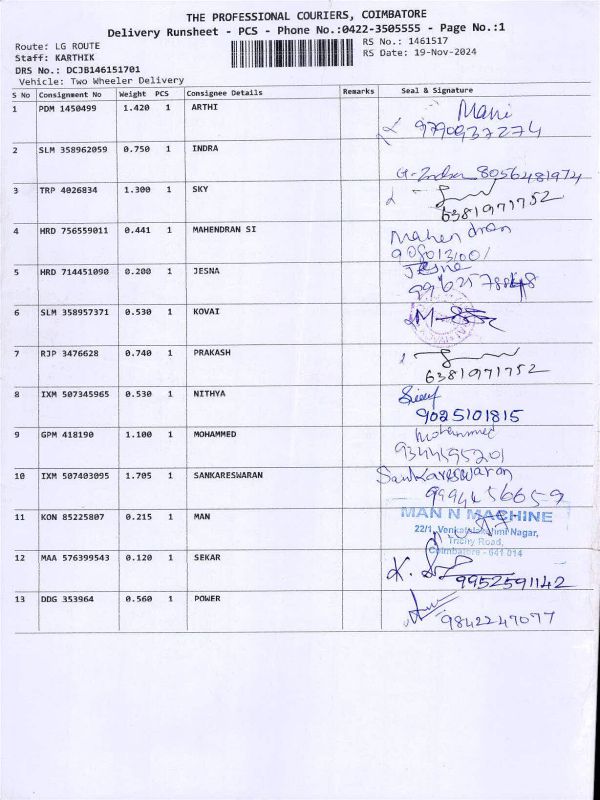 THE PROFESSIONAL COURIERS, COIMBATORE
Delivery Runsheet - PCS - Phone No.:0422-3505555 - Page No.:1
Route: LG ROUTE
RS No.: 1461517
Staff: KARTHIK
RS Date: 19-Nov-2024
DRS No.: DCJB146151701
Vehicle: Two Wheeler Delivery
S No Consignment No Weight PCS Consignee Details Remarks Seal & Signature
1 PDM 1450499 1.420 1 ARTHI Mani
9790937274
2 SLM 358962059 0.750 1 INDRA
G-Indra 8056481974
3 TRP 4026834 1.300 1 SKY
6381971752
4 HRD 756559011 0.441 1 MAHENDRAN SI Mahendran
5 HRD 714451090 0.200 1 JESNA Jesna
6 SLM 358957371 0.530 1 KOVAI
7 RJP 3476628 0.740 1 PRAKASH
6381971752
8 IXM 507345965 0.530 1 NITHYA
9025101815
9 GPM 418190 1.100 1 MOHAMMED Mohammed
10 IXM 507403095 1.705 1 SANKARESWARAN Sankareswaran
9994456659
11 KON 85225807 0.215 1 MAN MAN N MACHINE
22/1, Venkatalakshmi Nagar,
Trichy Road,
Coimbatore - 641 014
12 MAA 576399543 0.120 1 SEKAR K.
9952591142
13 DDG 353964 0.560 1 POWER
9842247077